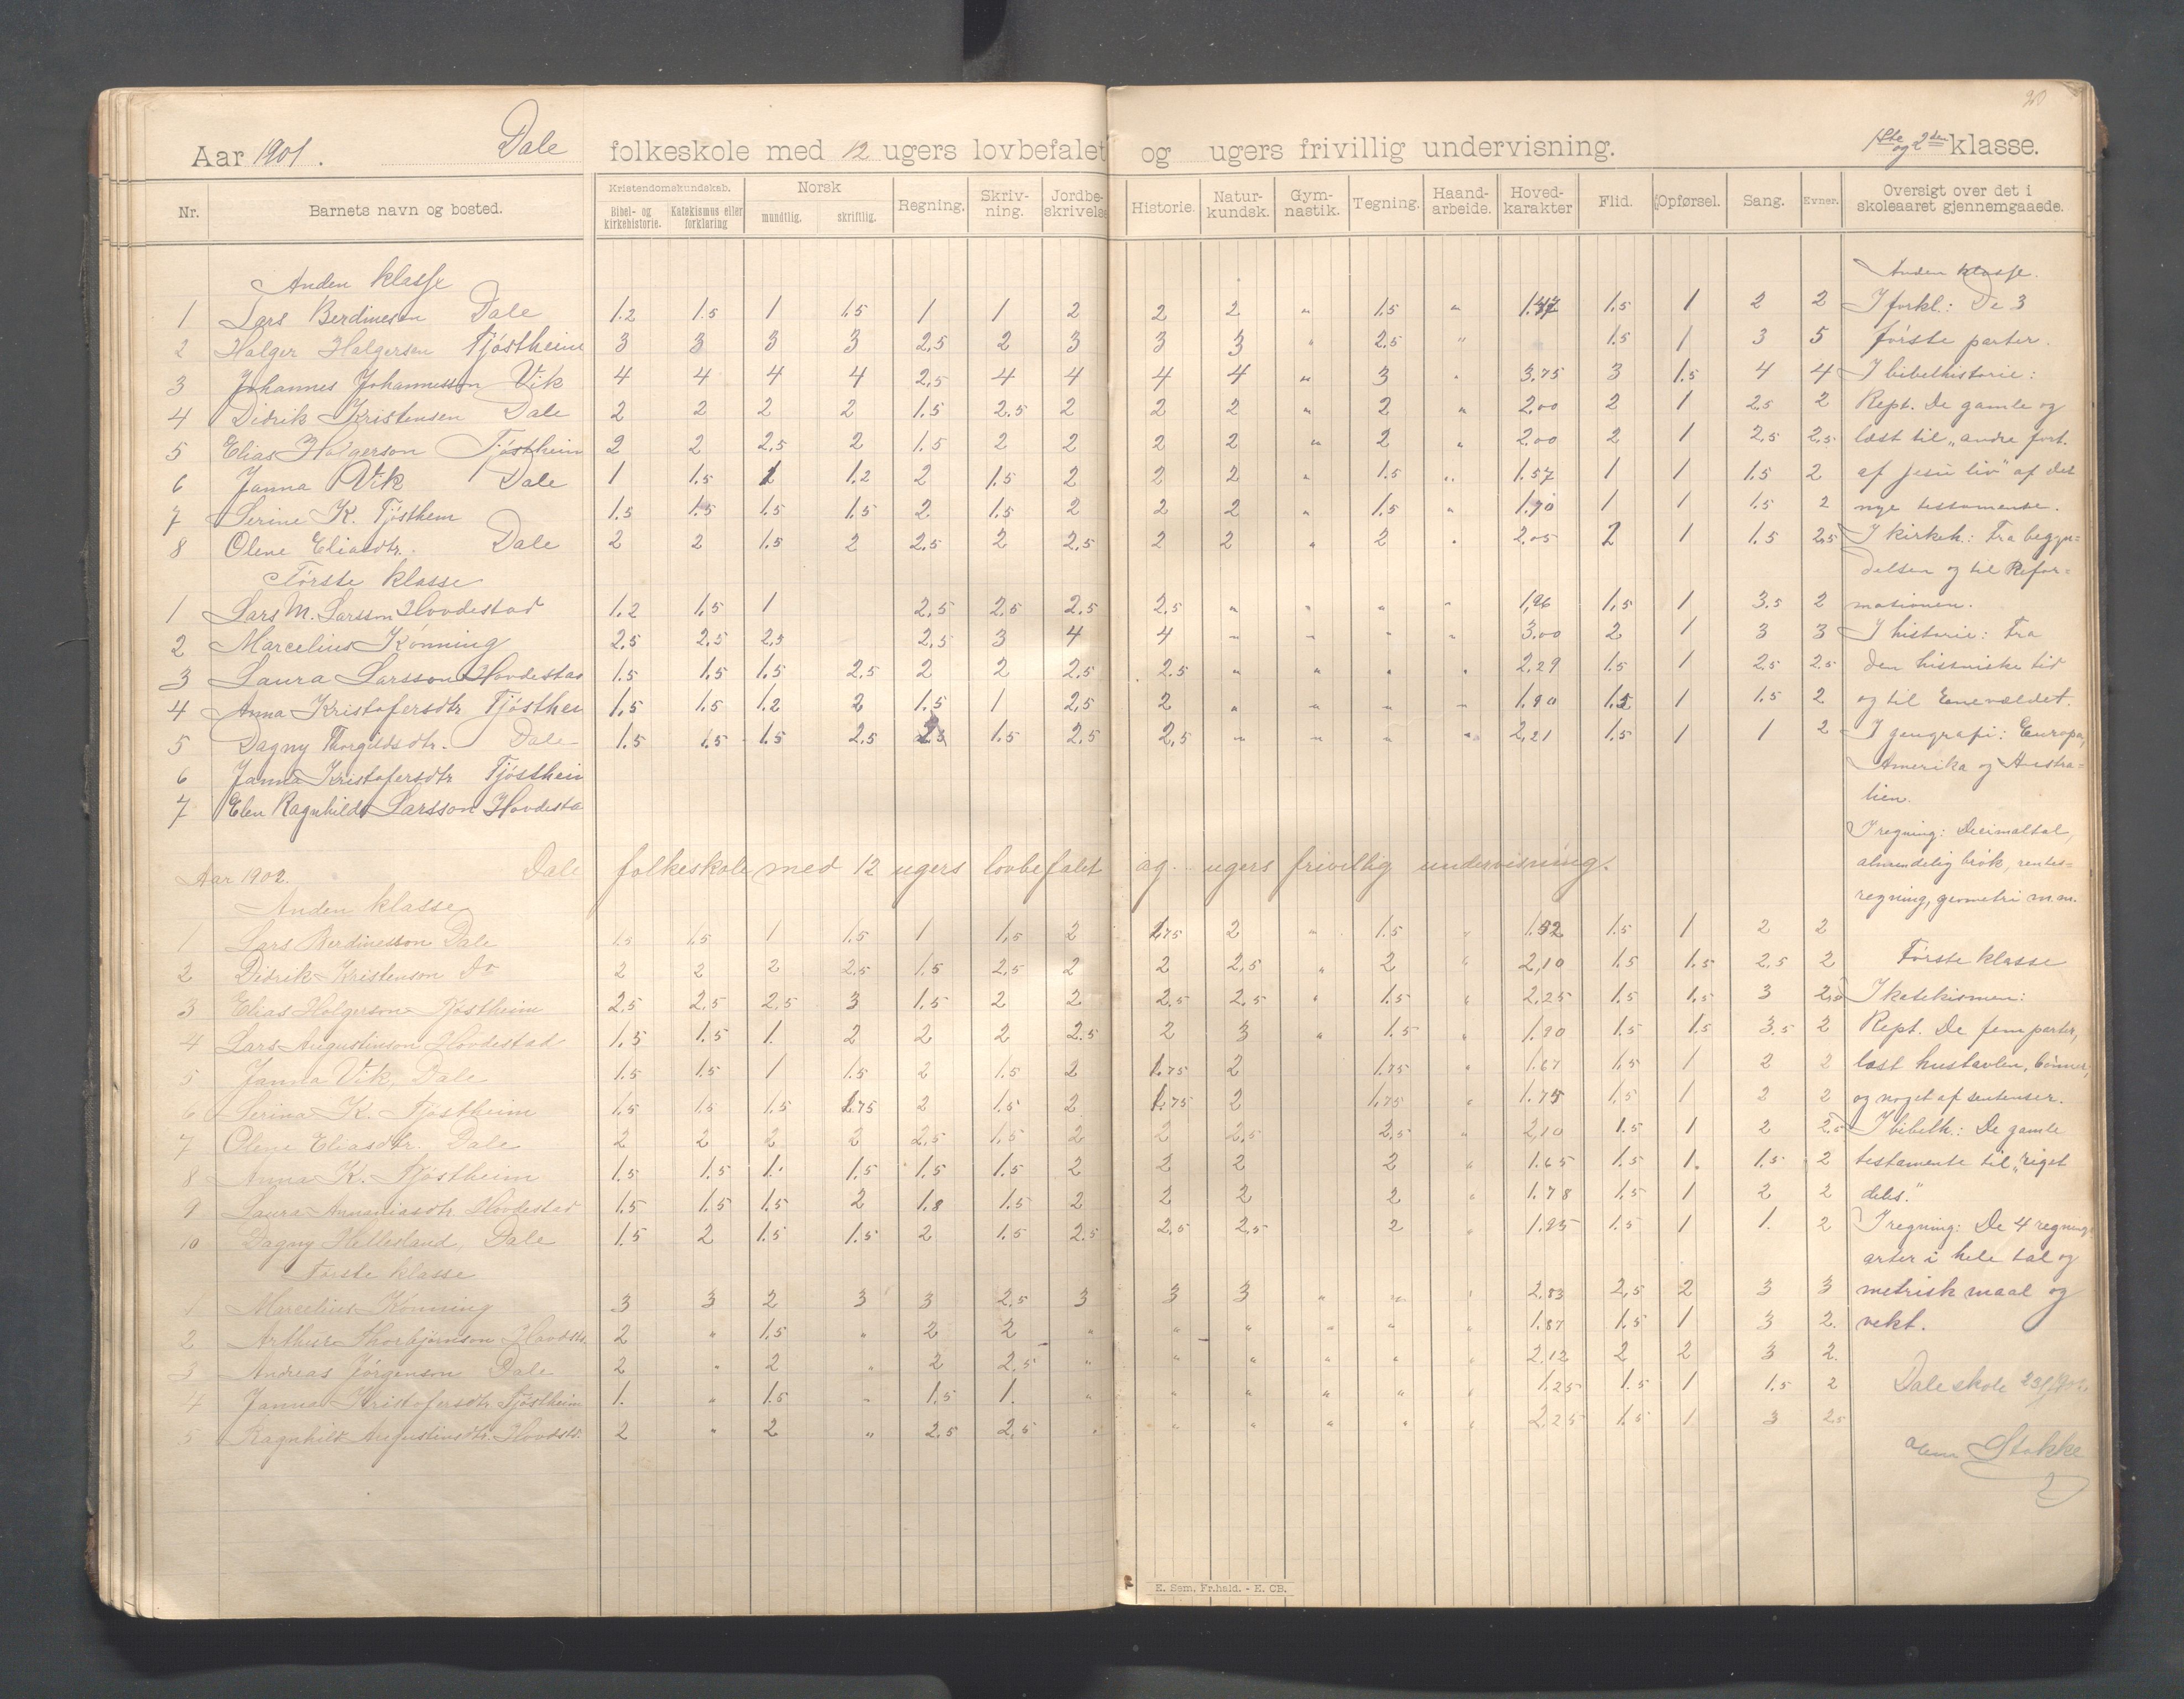 20
Aar 1901. Dale folkeskole med 12 ugers lovbefalet og ugers frivillig undervisning. 1ste og 2den klasse.
Nr. Barnets navn og bosted. Kristendomskundskab. Bibel- og kirkehistorie. Katekismus eller forklaring Norsk mundtlig. skriftlig. Regning. Skriv-ning. Jordbe-skrivelse Historie. Natur-kundsk. Gym-nastik. Tegning. Haand-arbeide. Hoved-karakter Flid. Opførsel. Sang. Evner. Oversigt over det i skoleaaret gjennemgaaede.
Anden klasse Anden klasse.
1 Lars Berdinesen Dale 1.2 1.5 1 1.5 1 1 2 2 2 " 1.5 " 1.47 1.5 1 2 2 I forkl.: De 3
2 Holger Holgersen Tjøstheim 3 3 3 3 2,5 2 3 3 3 " 2.5 " 1.5 1 3 5 første parter.
3 Johannes Johannesson Vik 4 4 4 4 2,5 4 4 4 4 " 3 " 3.75 3 1.5 4 4 I bibelhistorie:
4 Didrik Kristensen Dale 2 2 2 2 1.5 2.5 2 2 2 " 2 " 2.00 2 1 2.5 2 Rept. De gamle og
5 Elias Holgerson Tjøstheim 2 2 2,5 2 1.5 2 2 2 2 " 2 " 2.00 2 1 2.5 2.5 læst til „andre fort.
6 Janna Vik Dale 1 1.5 1 1.2 2 1.5 2 2 2 " 1.5 " 1.57 1 1 1.5 2 af Jesu liv" af det
7 Serine K. Tjøsthem 1.5 1.5 1.5 1.5 2 1.5 2 2 2 " 1.5 " 1.70 1 1 1.5 2 nye testamente.
8 Olene Eliasdtr. Dale 2 2 1.5 2 2,5 2 2,5 2 2 " 2 " 2.05 2 1 1.5 2.5 I kirkeh.: Fra begyn=
Første klasse delsen og til Refor=
1 Lars M. Larsson Hovdestad 1.2 1,5 1 2,5 2.5 2.5 2.5 " " " " 1,96 1,5 1 3.5 2 mationen.
2 Marcelius Kønning 2,5 2,5 2,5 2,5 3 4 4 " " " " 3.00 2 1 3 3 I historie: Fra
3 Laura Larsson Hovdestad 1.5 1.5 1.5 2.5 2 2 2,5 2.5 " " " " 2.29 1.5 1 2.5 2.5 den historiske tid
4 Anna Kristofersdtr Tjøsthei 1,5 1.5 1.2 2 1.5 1 2,5 2 " " " " 1.90 1.5 1 1.5 2 og til Enevældet.
5 Dagny Thorgilsdtr. Dale 1.5 1.5 1.5 2.5 2.5 1.5 2,5 2,5 " " " " 2,21 1.5 1 1 2 I geografi: Europa,
6 Janna Kristofersdtr Tjøsthein Amerika og Austra=
7 Elen Ragnhild Larsson Hovdesta lien.
I regning: Decimaltal,
Aar 1902. Dale folkeskole med 12 ugers lovbefalet og ugers frivillig undervisning. almindelig brøk, rentes=
Anden klasse regning, geometri m.m.
1 Lars Berdinesson Dale 1.5 1.5 1 1.5 1 1,5 2 1.75 2 " 1.5 " 1.52 1.5 1 2 2
2 Didrik Kristenson Do 2 2 2 2.5 1.5 2,5 2 2 2,5 " 2 " 2,10 1.5 1.5 2.5 2 Første klasse
3 Elias Holgerson Tjøstheim 2.5 2,5 2.5 3 1.5 2 2 2,5 2,5 " 1.5 " 2.25 1.5 1,5 3 2,5 I katekismen:
4 Lars Augustinson Hovdestad 1.5 1.5 1. 2 2 2 2.5 2 3 " 1.5 " 1.90 1.5 1.5 3.5 2 Rept. De fem parter,
5 Janna Vik, Dale 1.5 1.5 1 1.5 2 1.5 2 1.75 2 1.75 " 1.67 1.5 1 2 2 læst hustavlen, bønner,
6 Serina K. Tjøstheim 1.5 1.5 1.5 1.75 2 1.5 2 1.75 2 1.75 " 1.75 1.5 1 2 2 og noget af sentenser.
7 Olene Eliasdtr. Dale 2 2 2 2 2,5 1,5 2 2 2,5 2,5 " 2,10 1.5 1 2 2.5 I bibelh.: De gamle
8 Anna K. Tjøstheim 1.5 1.5 1. 1.5 1.5 1.5 2 2 2 2 " 1.65 1.5 1. 1.5 2 testamente til „riget
9 Laura Annaniasdtr. Hovdestad 1.5 1.5 1.5 2 1.8 1.5 2 2 2 2 " 1.78 1.5 1 2 2 deles."
10 Dagny Hellesland, Dale 1.5 2 1.5 1.5 2 1.5 2.5 2.5 2.5 2 " 1.85 1.5 1 1. 2 I regning: De 4 regnings
Første klasse arter i hele tal og
1 Marcelius Kønning 3 3 2 3 3 2.5 3 3 3 " " " 2.83 2,5 2 3 3 metrisk maal og
2 Arthur Thorbjørnson Hovdst. 2 " 1.5 " 2 2 " " " " " " 1.87 1.5 1 3 2. vekt.
3 Andreas Jørgenson Dale 2 " 2 " 2 2.5 " " " " " " 2.12 2 2 3 2.
4 Janna Kristofersdtr. Tjøstheim 1. " 1.5 " 1.5 1. " " " " " " 1.25 1.5 1 1.5 2 Dale skole
5 Ragnhild Augustinsdtr. Hovdst. 2 " 2 " 2.5 2,5 " " " " " " 2,25 1.5 1 3 2.5
Stokke
E. Sem, Fr.hald. - E. CB.